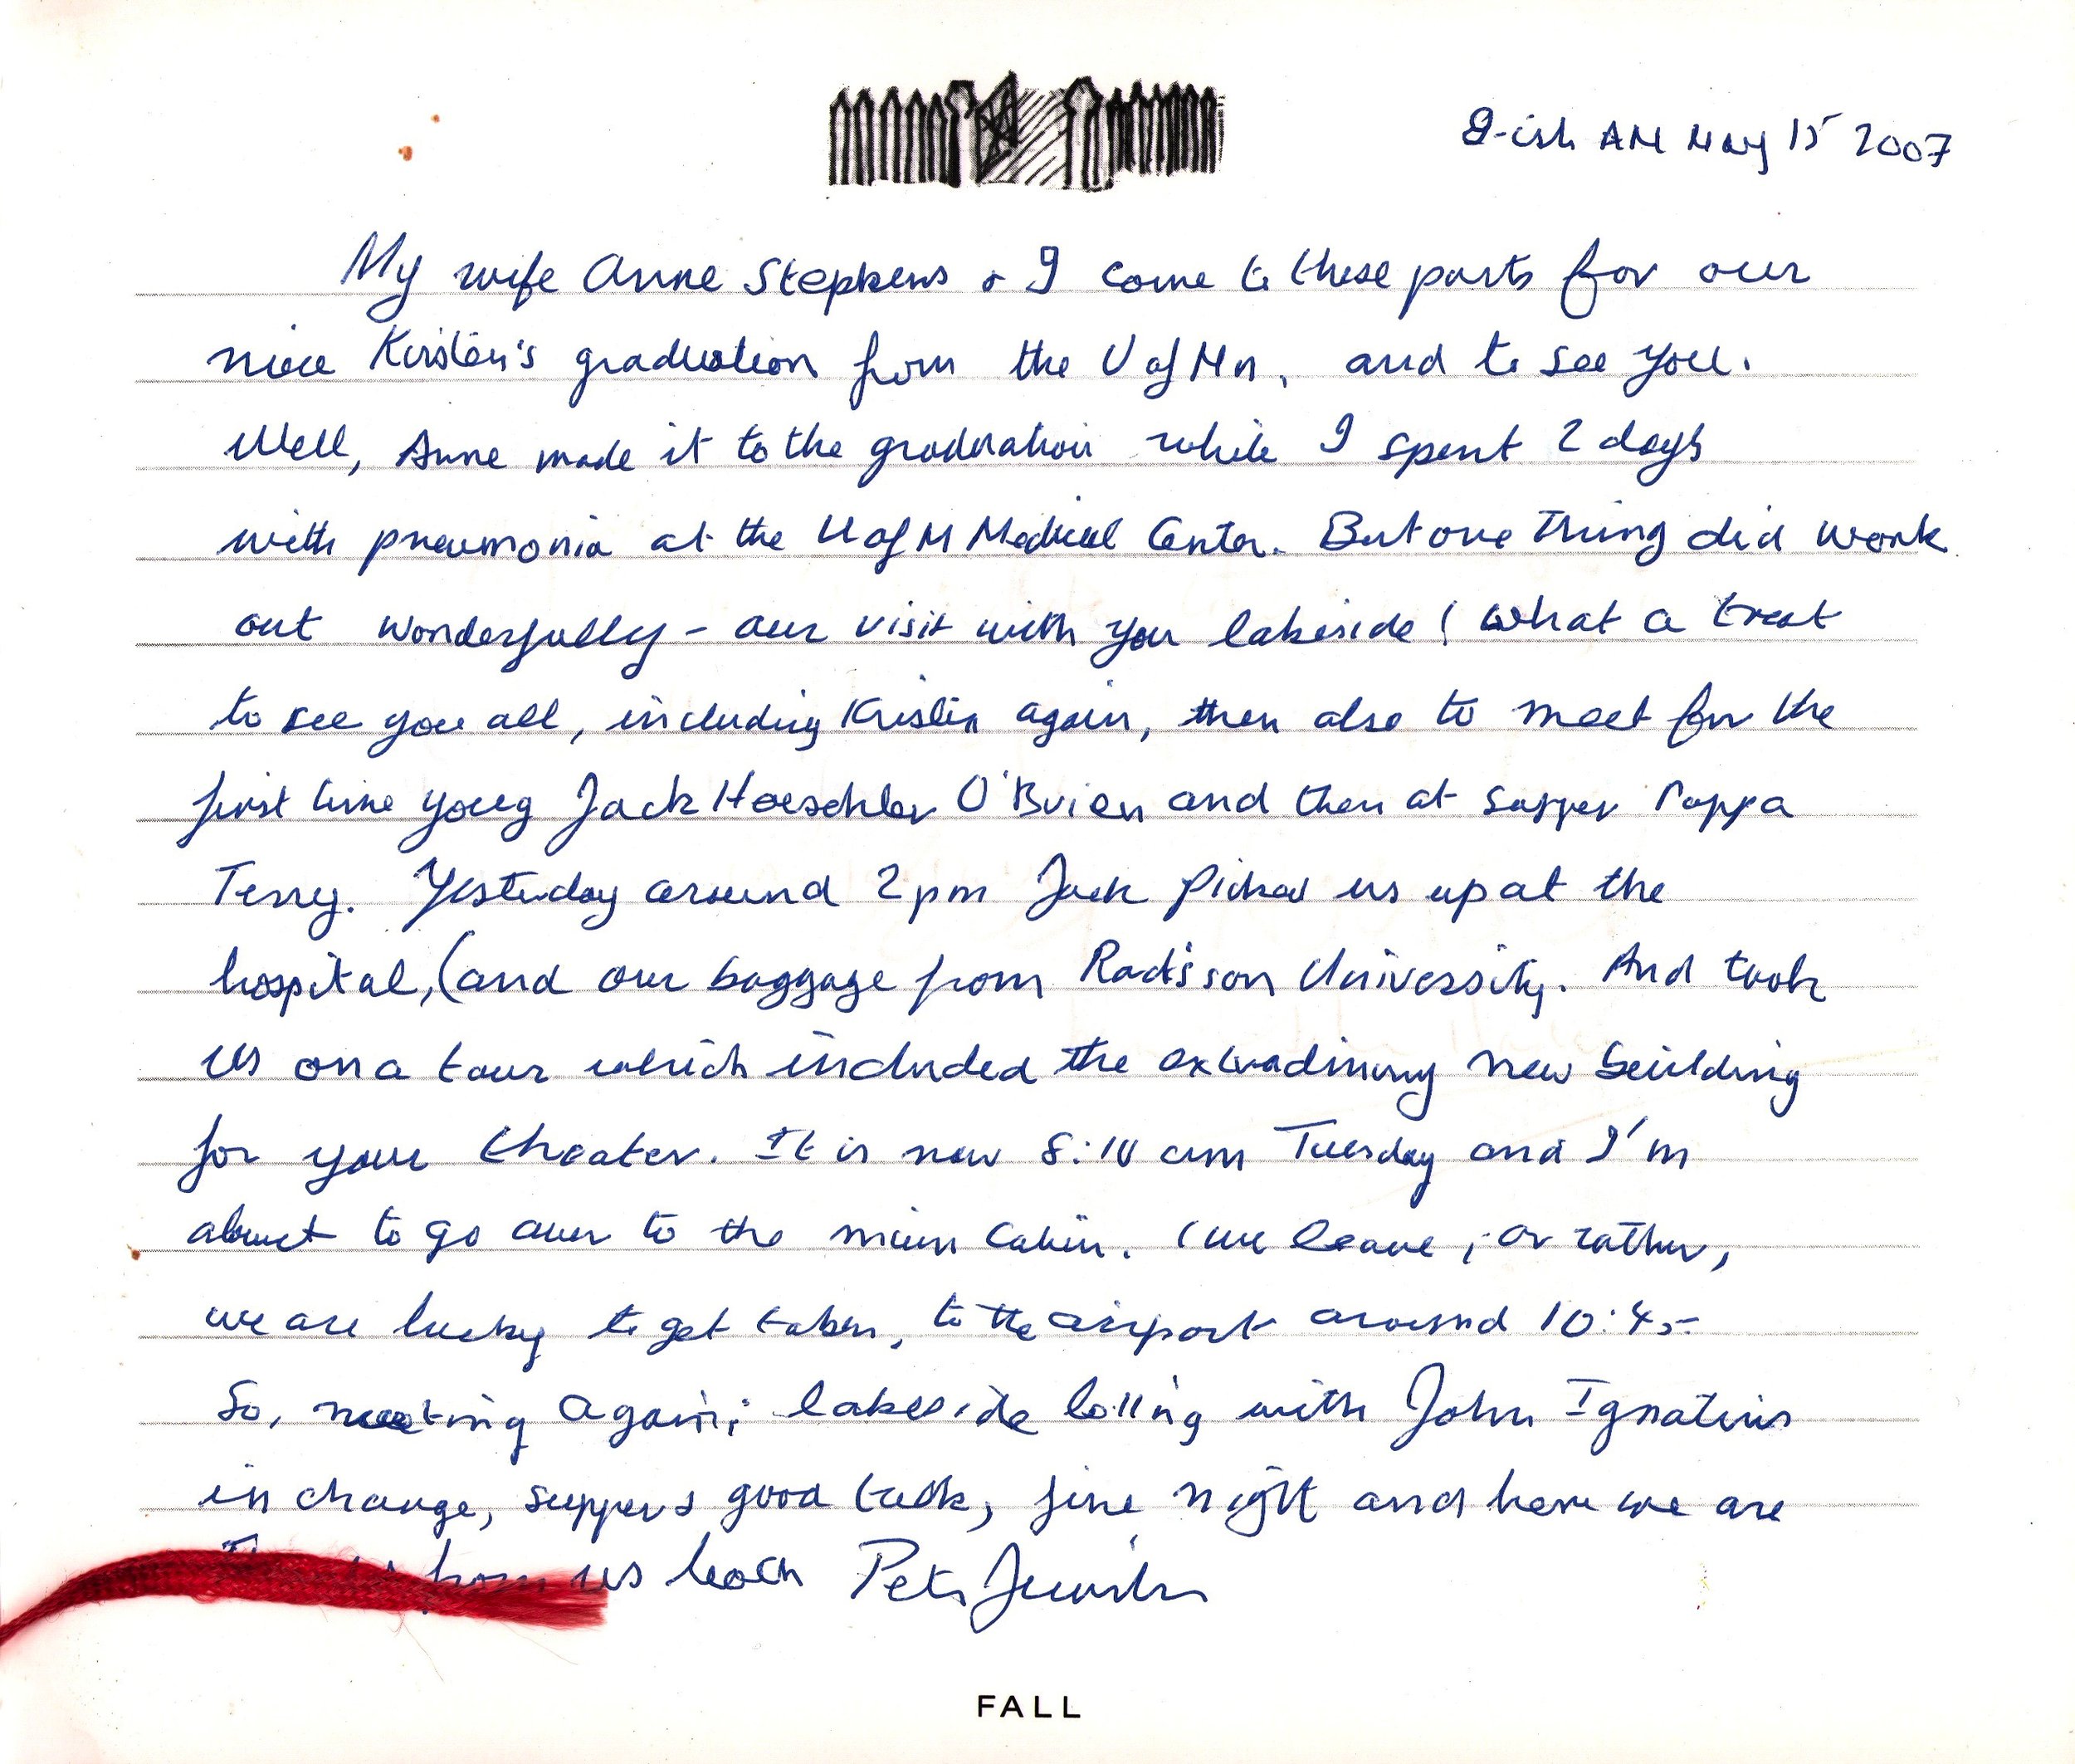 8-ish AM May 15 2007
My wife Anne Stephens & I come to these parts for our
niece Kirsten's graduation from the U of Mn, and to see you.
Well, Anne made it to the graduation while I spent 2 days
with pneumonia at the U of M Medical Center. But one thing did work
out wonderfully - our visit with you lakeside! What a treat
to see you all, including Kristin again, then also to meet for the
first time young Jack Hoeschler O'Brien and then at supper Pappa
Terry. Yesterday around 2pm Jack picked us up at the
hospital, (and our baggage from Radisson University. And took
us on a tour which included the extradinary new building
for your theater. It is now 8:10 am Tuesday and I'm
about to go over to the main cabin. (we leave, or rather,
we are lucky to get taken, to the airport around 10:45
So, meeting again; lakeside lolling with John Ignatius
in charge, suppers good talk, fine night and here we are
from us both Peter
FALL